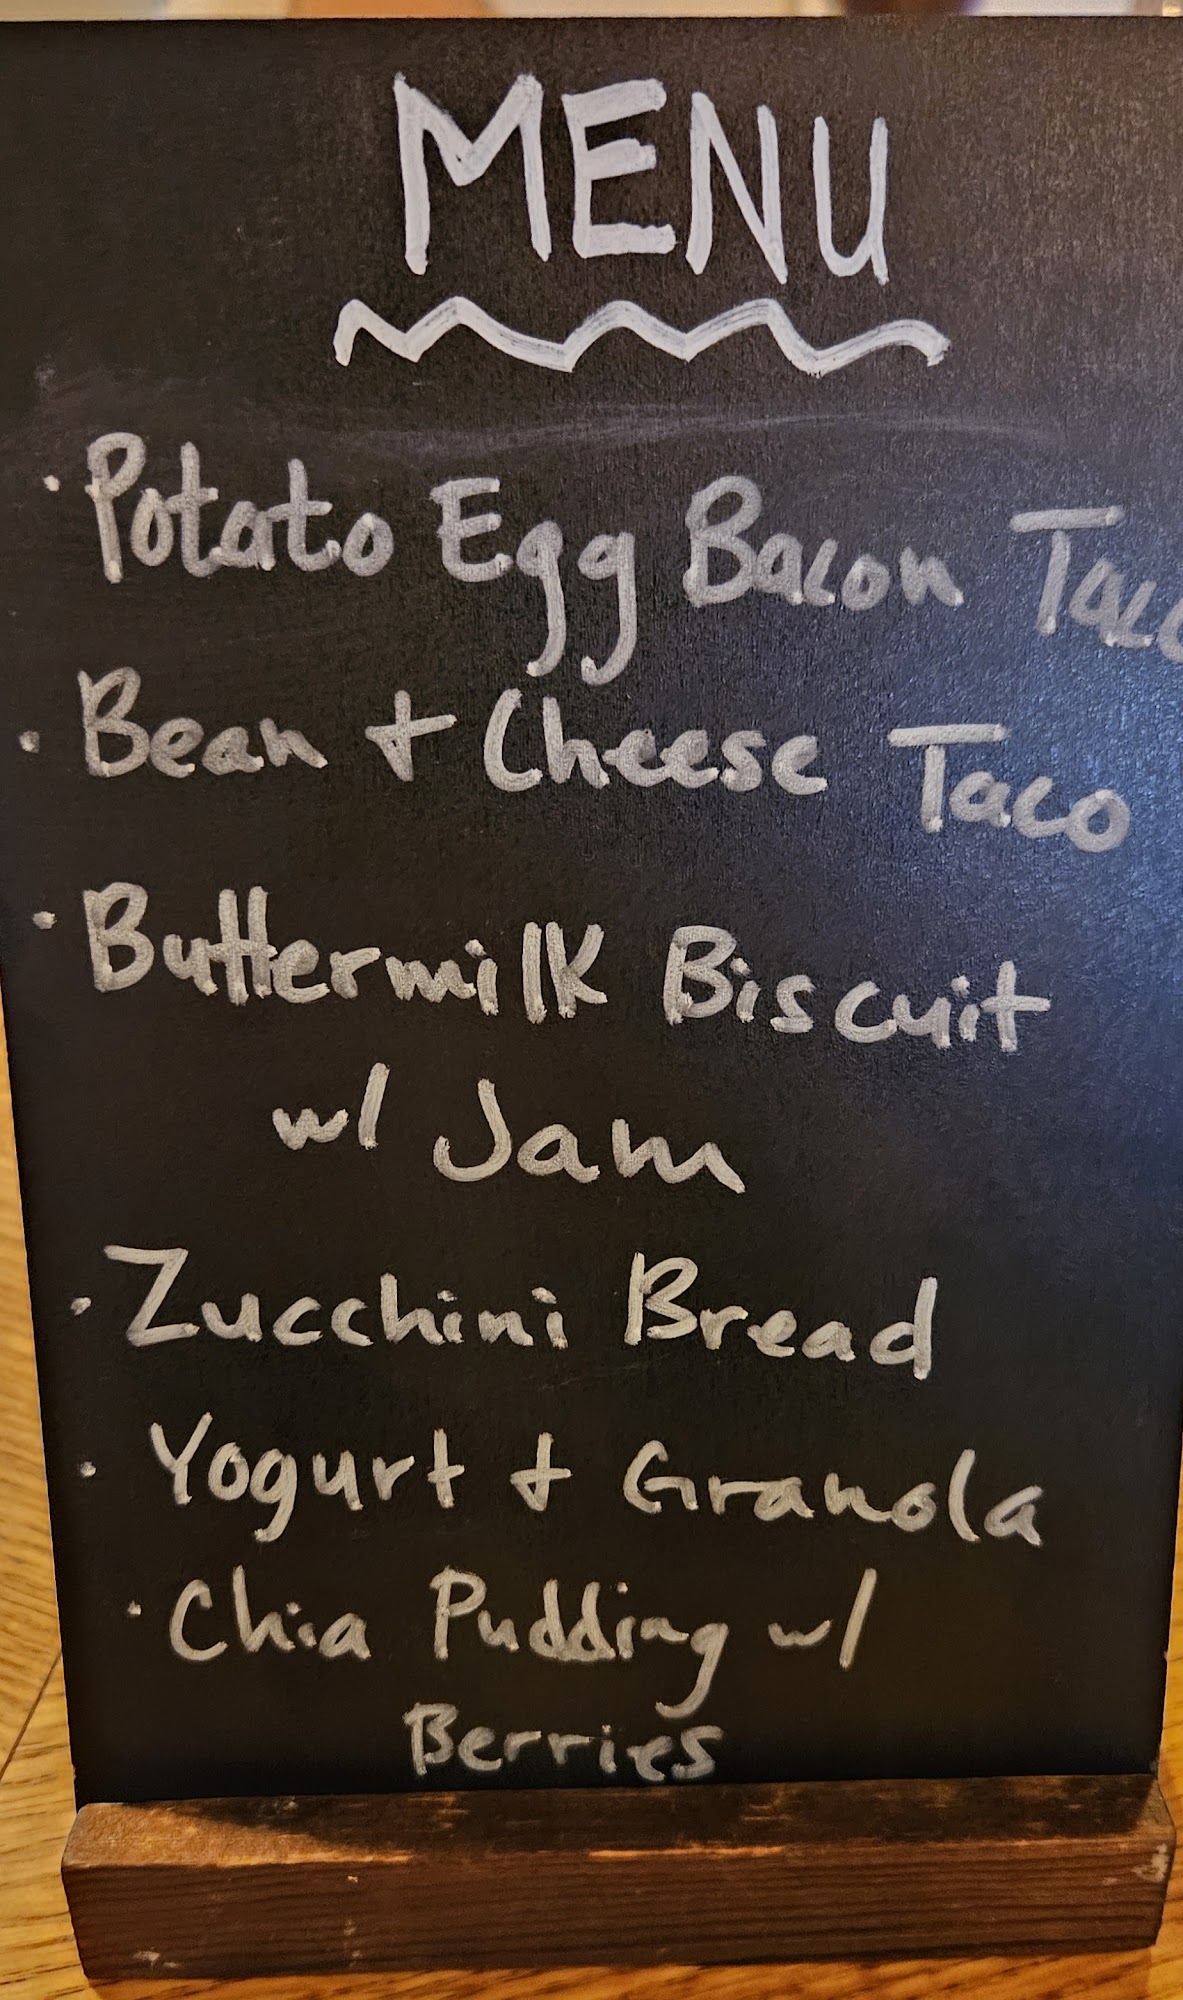 MENU
· Potato Egg Bacon Taco
· Bean + Cheese Taco
· Buttermilk Biscuit
w/ Jam
· Zucchini Bread
· Yogurt + Granola
· Chia Pudding w/
Berries